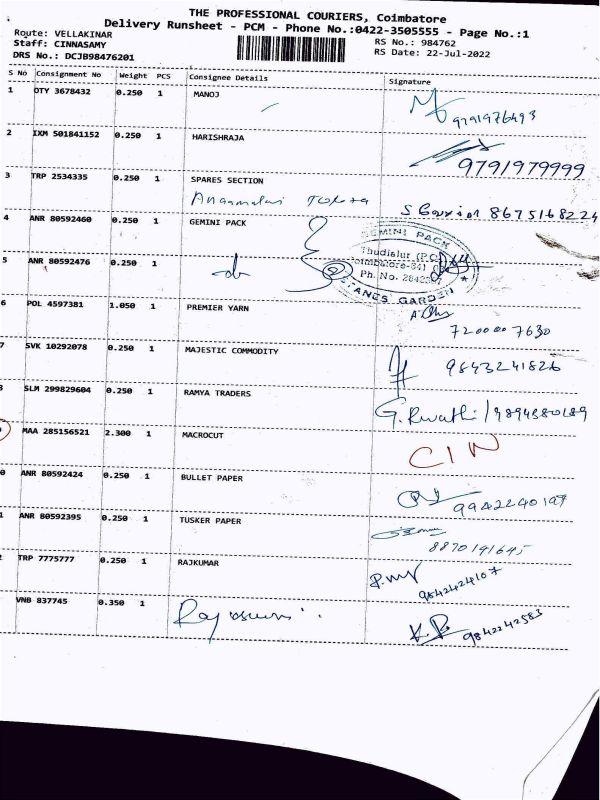 THE PROFESSIONAL COURIERS, Coimbatore
Delivery Runsheet - PCM - Phone No.:0422-3505555 - Page No.:1
Route: VELLAKINAR
Staff: CINNASAMY
DRS No.: DCJB98476201
RS No.: 984762
RS Date: 22-Jul-2022
S No Consignment No Weight PCS Consignee Details Signature
1 OTY 3678432 0.250 1 MANOJ
9791976493
2 IXM 501841152 0.250 1 HARISHRAJA
9791979999
3 TRP 2534335 0.250 1 SPARES SECTION
8675168224
4 ANR 80592460 0.250 1 GEMINI PACK
GEMINI PACK
Thudialur (P.O)
Coimbatore-641
Ph. No.
STANES GARDEN
5 ANR 80592476 0.250 1
6 POL 4597381 1.050 1 PREMIER YARN
7200007630
7 SVK 10292078 0.250 1 MAJESTIC COMMODITY
9843241826
SLM 299829604 0.250 1 RAMYA TRADERS
MAA 285156521 2.300 1 MACROCUT
CIN
0 ANR 80592424 0.250 1 BULLET PAPER
9942240197
1 ANR 80592395 0.250 1 TUSKER PAPER
8870191645
TRP 7775777 0.250 1 RAJKUMAR
9842424107
VNB 837745 0.350 1
9842242583